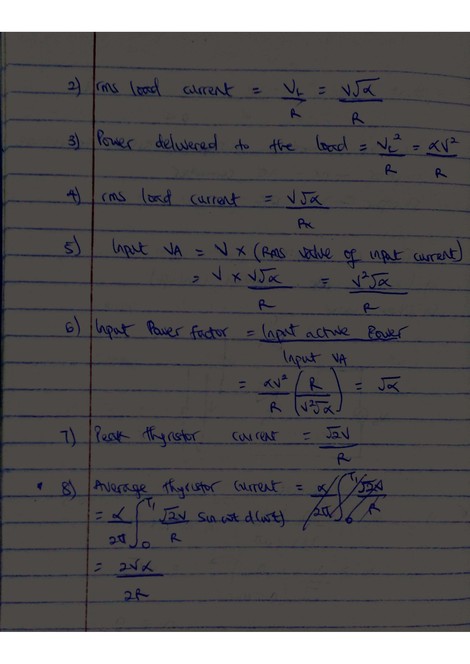 2) rms load current = V_L/R = V√α/R
3) Power delivered to the load = V_L²/R = αV²/R
4) rms load current = V√α/R
5) Input VA = V × (Rms value of input current)
= V × V√α/R = V²√α/R
6) Input Power factor = Input active Power/Input VA
= αV²/R (R/V²√α) = √α
7) Peak thyristor current = √2V/R
8) Average thyristor current =
= α/2π ∫₀ √2V/R sin wt d(wt)
= 2Vα/2R